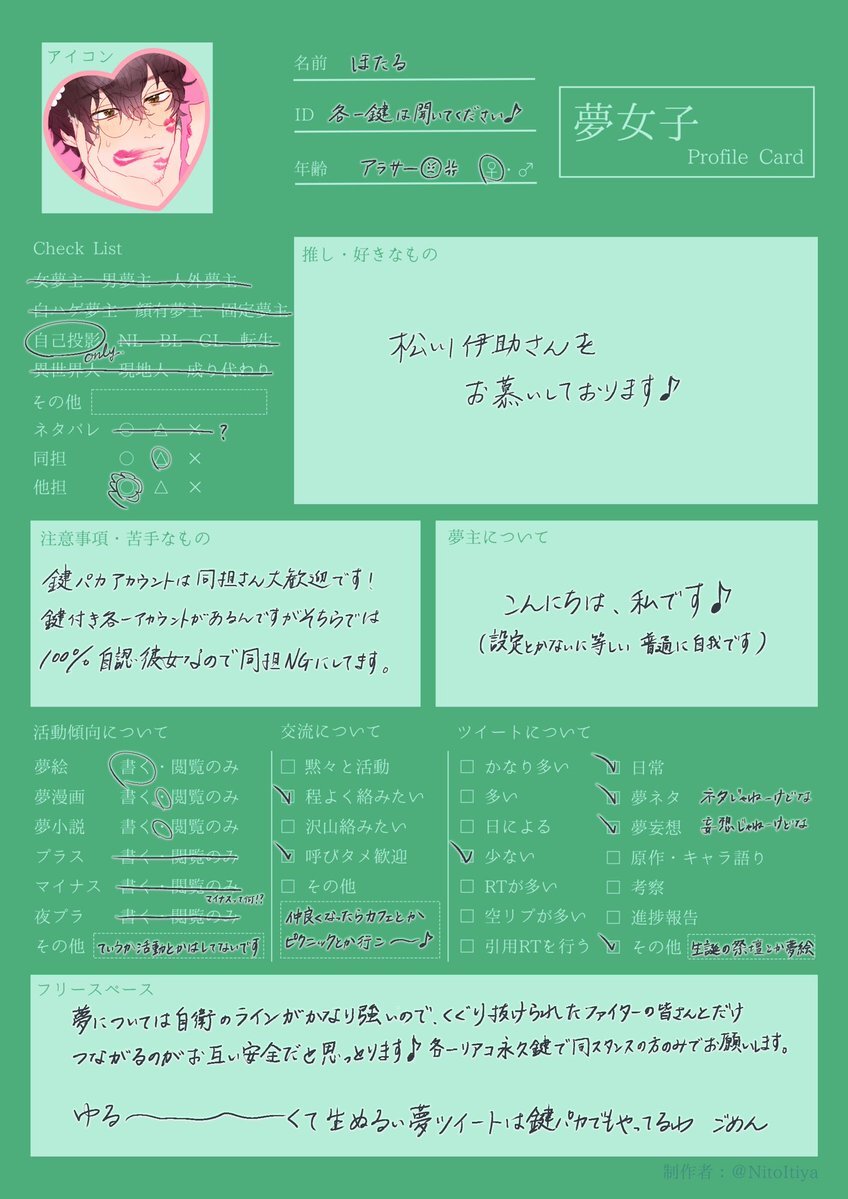 アイコン
名前 ほたる
ID 各一鍵は聞いてください♪
年齢 アラサー ♀・♂
夢女子
Profile Card
Check List
女夢主 男夢主 人外夢主
白ハゲ夢主 顔有夢主 固定夢主
自己投影 NL BL GL 転生
only
異世界人 現地人 成り代わり
その他
ネタバレ ○ △ × ?
同担 ○ △ ×
他担 ○ △ ×
推し・好きなもの
松川伊助さんを
お慕いしております♪
注意事項・苦手なもの
鍵パカアカウントは同担さん大歓迎です!
鍵付き各一アカウントがあるんですがそちらでは
100%自認・彼女なので同担NGにしてます。
夢主について
こんにちは、私です♪
(設定とかないに等しい 普通に自我です)
活動傾向について
夢絵 書く・閲覧のみ
夢漫画 書く・閲覧のみ
夢小説 書く・閲覧のみ
プラス 書く・閲覧のみ
マイナス 書く・閲覧のみ
マイナスって何!?
夜プラ 書く・閲覧のみ
その他 ていうか活動とかはしてないです
交流について
□ 黙々と活動
☑ 程よく絡みたい
□ 沢山絡みたい
☑ 呼びタメ歓迎
□ その他
仲良くなったらカフェとか
ピクニックとか行こ〜〜♪
ツイートについて
□ かなり多い
□ 多い
□ 日による
☑ 少ない
□ RTが多い
□ 空リプが多い
□ 引用RTを行う
☑ 日常
☑ 夢ネタ ネタじゃねーけどな
☑ 夢妄想 妄想じゃねーけどな
□ 原作・キャラ語り
□ 考察
□ 進捗報告
☑ その他 生誕の祭壇とか夢絵
フリースペース
夢については自衛のラインがかなり強いので、くぐり抜けられたファイターの皆さんとだけ
つながるのがお互い安全だと思っとります♪各一リアコ永久鍵で同スタンスの方のみでお願いします。
ゆる〜〜〜くて生ぬるい夢ツイートは鍵パカでもやってるわ ごめん
制作者:@NitoItiya